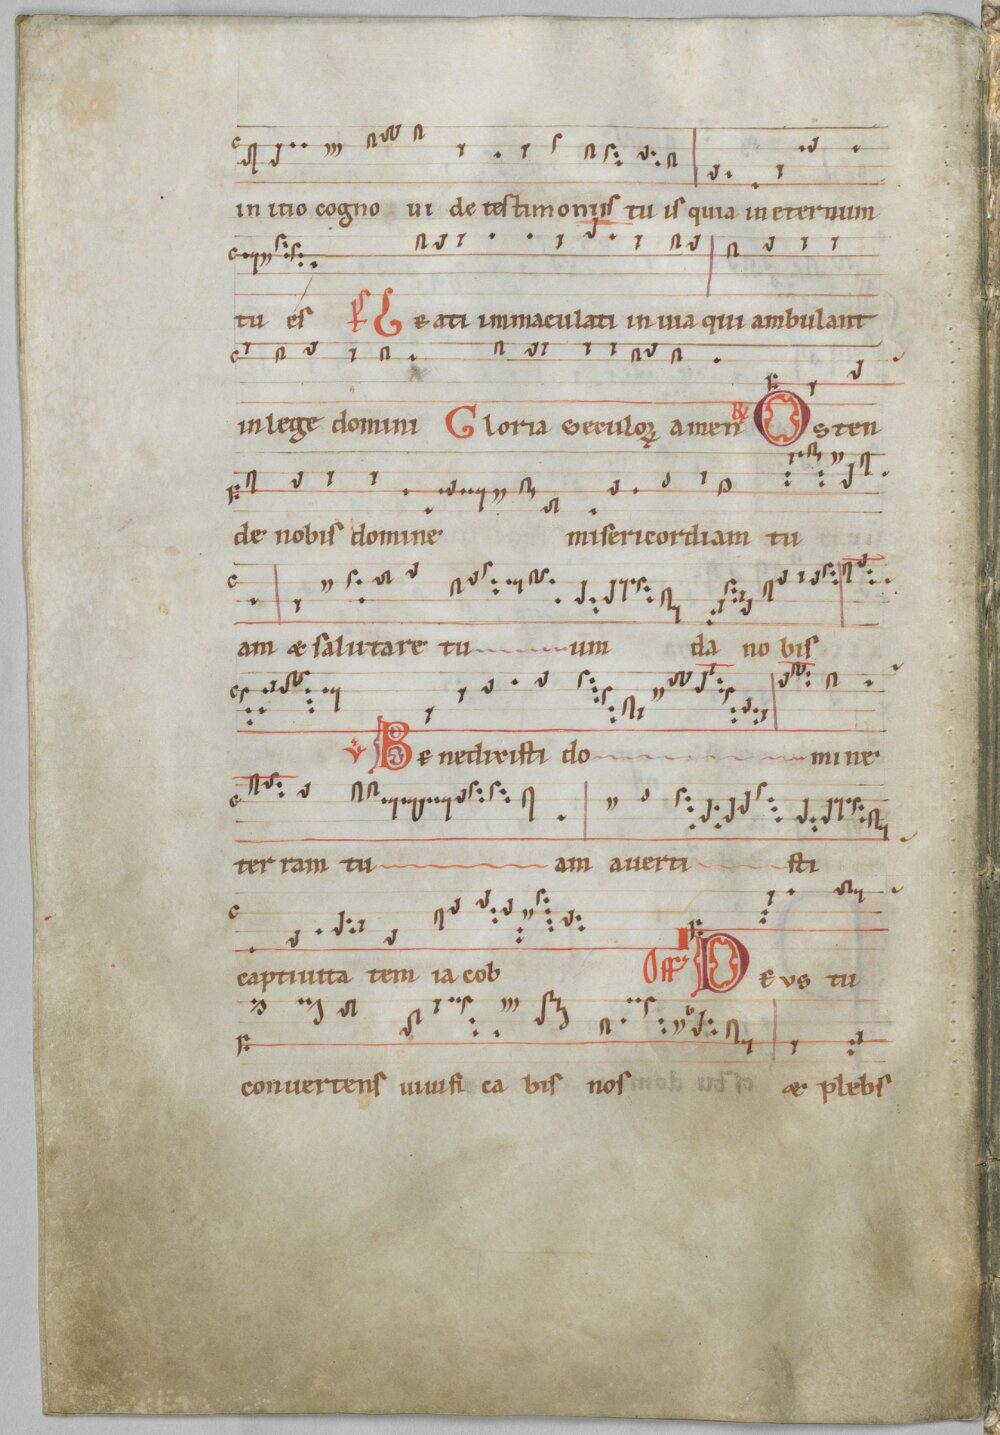 in itio cogno ui de testimoniis tu is quia in eternum
tu es ps Beati immaculati in uia qui ambulant
in lege domini Gloria seculoꝝ amen Osten
de nobis domine misericordiam tu
am & salutare tu um da no bis
℣ Benedixisti do mine
ter ram tu am auerti sti
captiuita tem iacob Off Deus tu
conuertens uiuifi ca bis nos & plebs